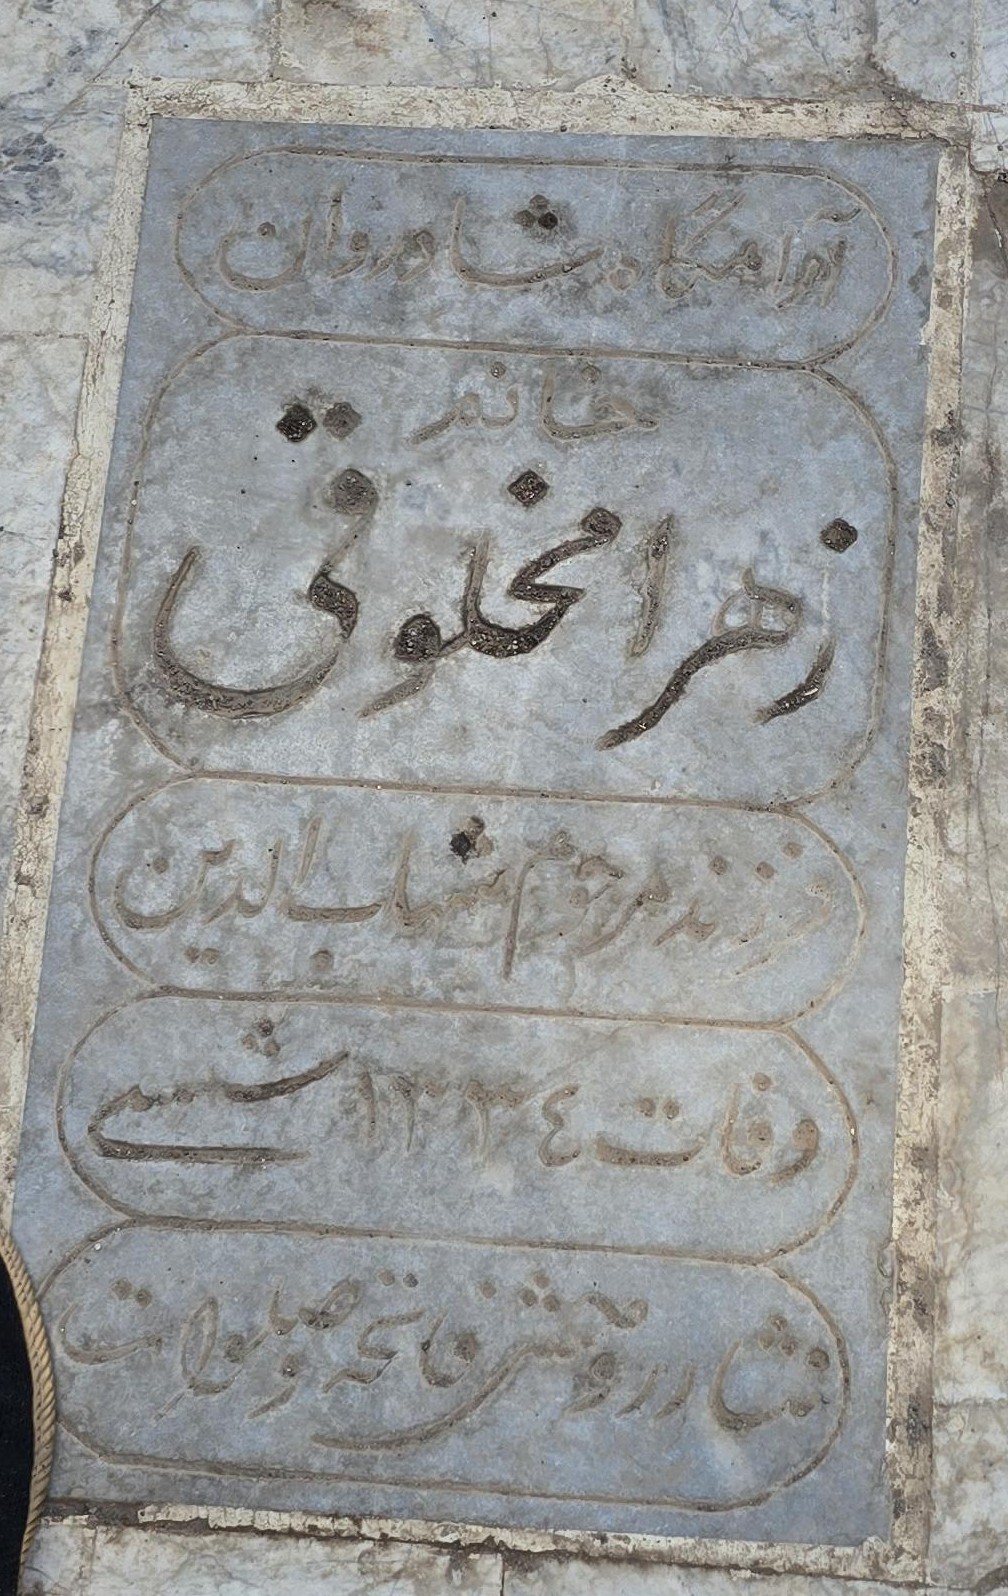 آرامگاه شادروان
خانم
زهرا مخلوقی
فرزند مرحوم شهاب الدین
وفات ۱۳۳٤ شمسی
نثار روحش فاتحه وصلوات